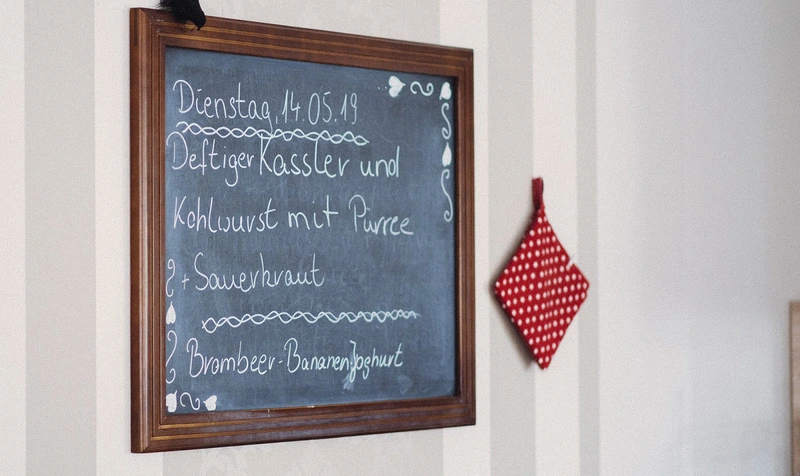 Dienstag, 14.05.19
Deftiger Kassler und
Kohlwurst mit Pürree
+ Sauerkraut
Brombeer-Bananen Joghurt